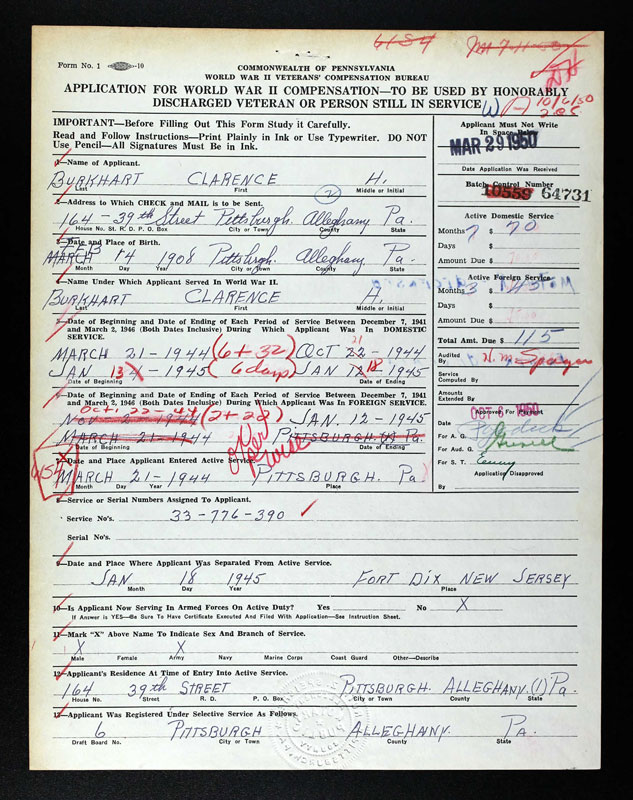 6184
Form No. 1 10
COMMONWEALTH OF PENNSYLVANIA
WORLD WAR II VETERANS' COMPENSATION BUREAU
APPLICATION FOR WORLD WAR II COMPENSATION—TO BE USED BY HONORABLY
DISCHARGED VETERAN OR PERSON STILL IN SERVICE
10/6/50
IMPORTANT—Before Filling Out This Form Study it Carefully.
Read and Follow Instructions—Print Plainly in Ink or Use Typewriter. DO NOT
Use Pencil—All Signatures Must Be in Ink.
Applicant Must Not Write
In Space Below
MAR 29 1950
Date Application Was Received
Batch Control Number
10559 64731
1—Name of Applicant.
BURKHART CLARENCE H.
Last First Middle or Initial
2—Address to Which CHECK and MAIL is to be Sent.
164 - 39th Street Pittsburgh. Alleghany Pa.
House No. St. R. D. P. O. Box City or Town County State
3—Date and Place of Birth.
FEB
MARCH 14 1908 Pittsbrgh. Alleghany Pa.
Month Day Year City or Town County State
4—Name Under Which Applicant Served In World War II.
BURKHART CLARENCE H.
Last First Middle or Initial
5—Date of Beginning and Date of Ending of Each Period of Service Between December 7, 1941
and March 2, 1946 (Both Dates Inclusive) During Which Applicant Was In DOMESTIC
SERVICE.
MARCH 21-1944 (6+32) OCT 22-1944
21
JAN 13 1945 (6 days) JAN 12 18 1945
Date of Beginning Date of Ending
6—Date of Beginning and Date of Ending of Each Period of Service Between December 7, 1941
and March 2, 1946 (Both Dates Inclusive) During Which Applicant Was In FOREIGN SERVICE.
Oct. 22-44
Nov 2-1944 (2+22) JAN. 12-1945
MARCH 21-1944 PITTSBURGH. Pa.
Date of Beginning Date of Ending
7—Date and Place Applicant Entered Active Service.
MARCH 21-1944 PITTSBURGH. Pa.
Month Day Year Place
8—Service or Serial Numbers Assigned To Applicant.
Service No's. 33-776-390
Serial No's.
9—Date and Place Where Applicant Was Separated From Active Service.
JAN 18 1945 FORT DIX NEW JERSEY
Month Day Year Place
10—Is Applicant Now Serving In Armed Forces On Active Duty? Yes No X
If Answer is YES—Be Sure To Have Certificate Executed And Filed With Application—See Instruction Sheet.
11—Mark "X" Above Name To Indicate Sex and Branch of Service.
X X
Male Female Army Navy Marine Corps Coast Guard Other—Describe
12—Applicant's Residence At Time of Entry Into Active Service.
164 39th STREET PITTSBURGH. ALLEGHANY. (1) Pa.
House No. Street R. D. P. O. Box City or Town County State
13—Applicant Was Registered Under Selective Service As Follows.
6 PITTSBURGH ALLEGHANY. PA.
Draft Board No. City or Town County State
Active Domestic Service
Months 7 $ 70
Days $
Amount Due $
Active Foreign Service
Months 3 $
Days $
Amount Due $
Total Amt. Due $ 115
Audited
By
Service
Computed By
Amounts
Extended By
OCT 6 1950
Approved For Payment
Date
For A. G.
For Aud. G.
For S. T.
Application Disapproved
By